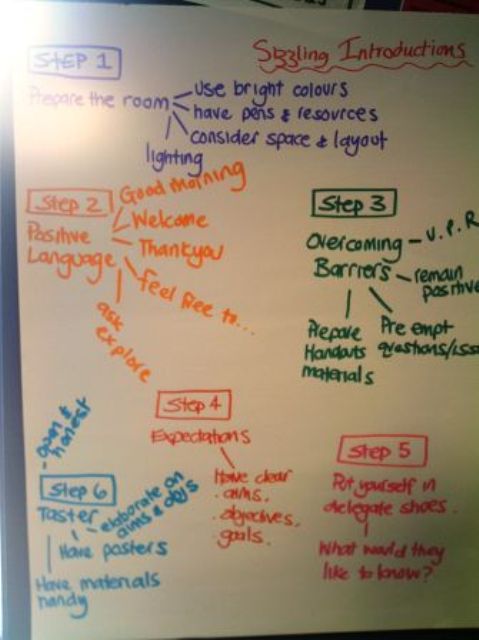 Sizzling Introductions
STEP 1
Prepare the room
use bright colours
have pens & resources
consider space & layout
lighting
Step 2
Positive
Language
Good morning
Welcome
Thankyou
Feel free to...
ask
explore
Step 3
Overcoming
Barriers
U.P.R
remain
positive
Prepare
Handouts
materials
Pre empt
questions/
Step 4
Expectations
Have clear
. aims.
. objectives.
. goals.
Step 5
Put yourself in
delegate shoes.
What would they
like to know?
- open &
honest
Step 6
Taster
elaborate on
aims & objs
Have posters
Have materials
handy